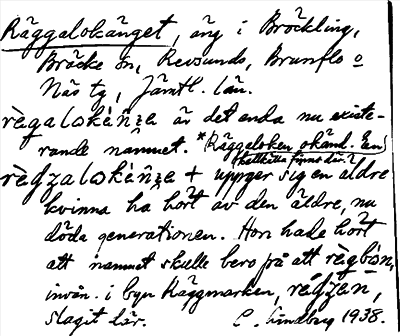 Räggalokänget, äng i Bräckling,
Bräcke sn, Revsunds, Brunflo o
Näs tg, Jämtl. län.
règaloкèn̂ʒe är det enda nu existe-
rande namnet. *Räggaloken okänd. En
(kallkälla finns där?)
règzaloкèn̂ʒe + uppger sig en äldre
kvinna ha hört av den äldre, nu
döda generationen. Hon hade hört
att namnet skulle bero på att règbòn,
invån. i byn Räggmarken,
slagit där. C. Lindberg 1938.